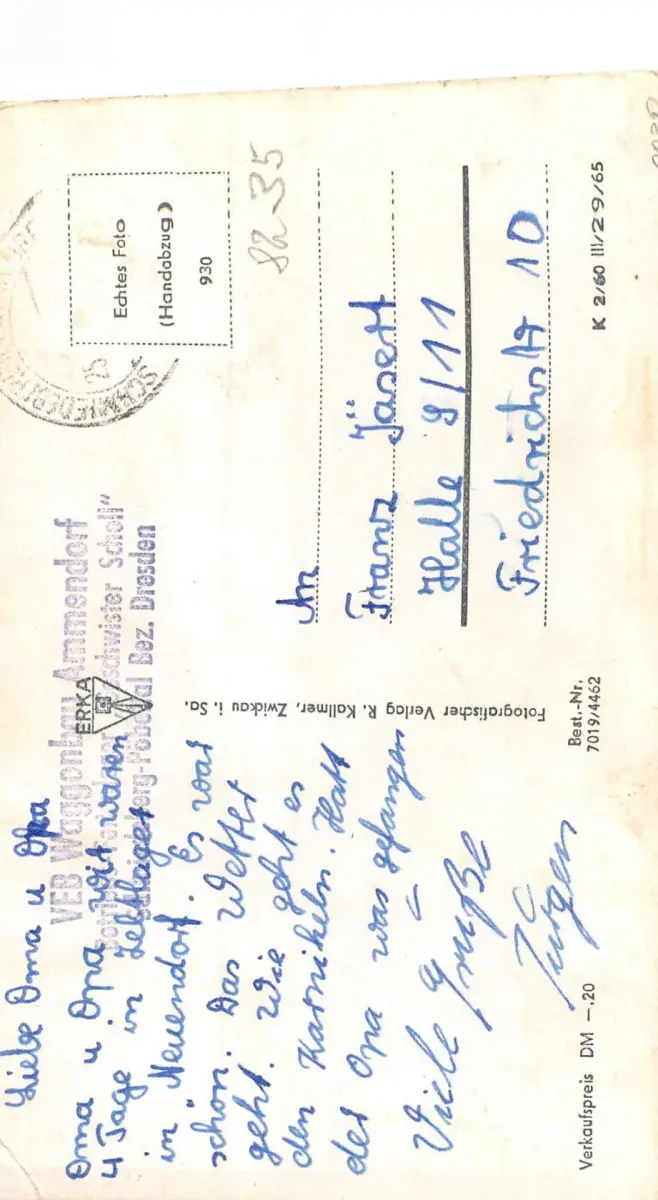 Liebe Oma u Opa
Oma u Opa wir waren
4 Tage in Zeltlager
in "Neuendorf. Es war
schön. Das Wetter
geht. Wie geht es
den Karnikeln. Hatt
der Opa was gefangen
Viele Grüße
Jürgen
Verkaufspreis DM —.20
VEB Waggonbau Ammendorf
Scholl"
Bez. Dresden
ERKA
Fotografischer Verlag R. Kallmer, Zwickau i. Sa.
Best.-Nr.
7019/4462
Echtes Foto
(Handabzug)
930
25
82 35
An
Franz Jäsert
Halle 9/11
Friedrichstr 10
K 2/60 III/29/65